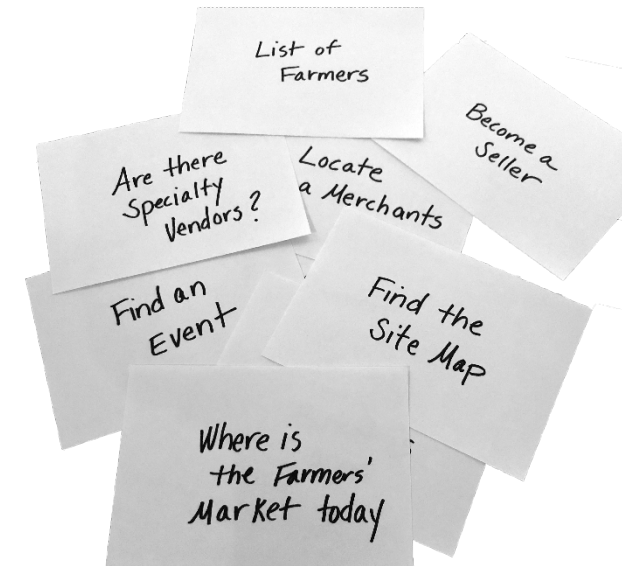 List of
Farmers
Become a
Seller
Are there
Specialty
Vendors?
Locate
a Merchants
Find an
Event
Find the
Site Map
Where is
the Farmers'
Market today